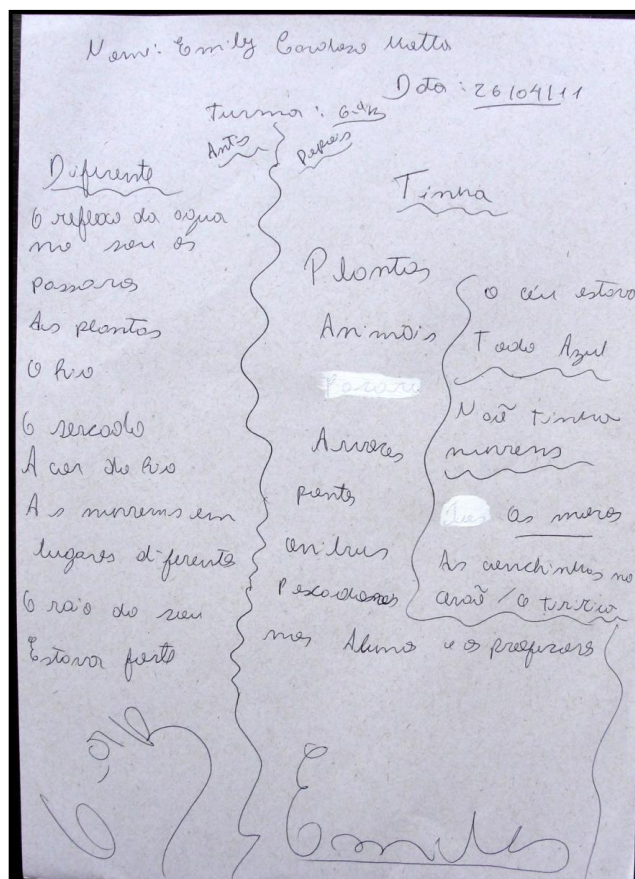 Nome: Emily Cardozo Mattos
Data: 26/04/11
Turma: 6ªB
Antes
Depois
Diferente
O reflexo da agua
no seu os
passaros
As plantas
O Rio
O sercado
A cor do Rio
As nuvems em
lugares diferente
O raio do seu
Estava forte
6ªB
Tinha
Plantas
Animais
Arvores
pontes
onibus
Pescadores
nos Aluno e os professors
O céu estava
Todo Azul
Naõ tinha
nuvens
As conchinhas no
chaõ / O tiririca